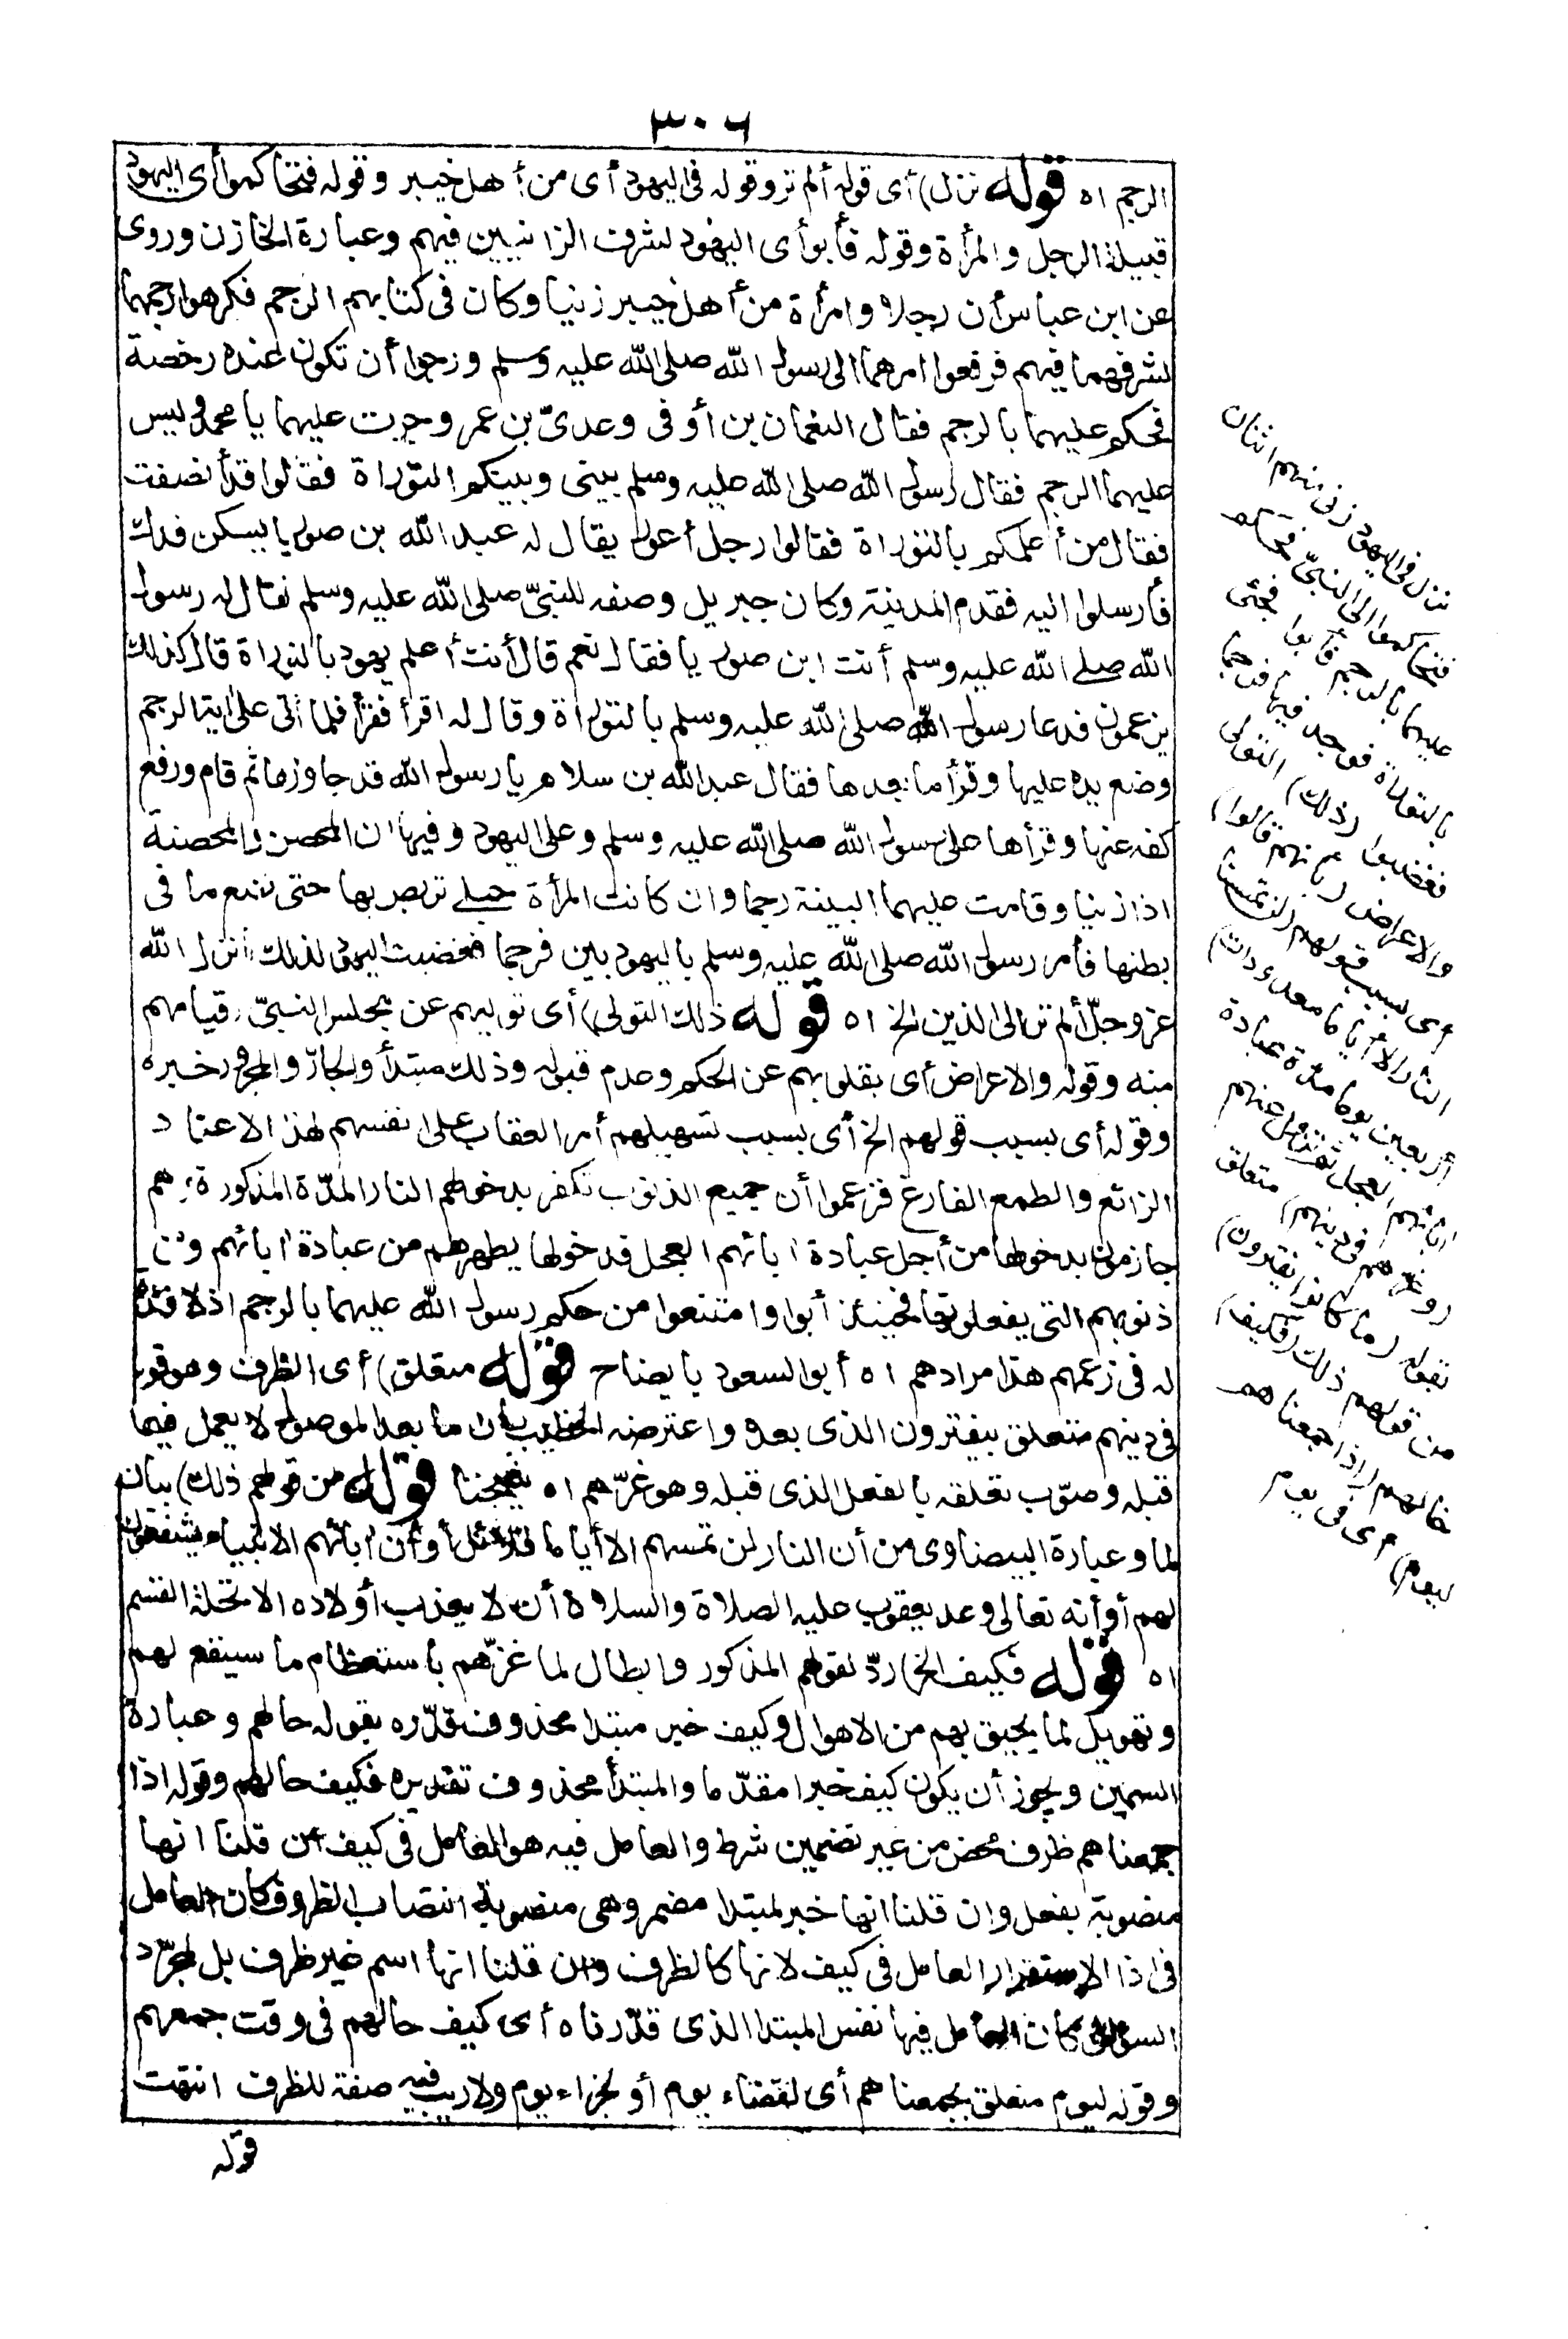 ٣٠٦
الرجم اه قوله نزل) أى قوله ألم تر وقوله فى اليهود أى من أهل خيبر وقوله فتحاكموا أى اليهود
قبيلة الرجل والمرأة وقوله فأبوا أى اليهود لشرف الزانيين فيهم وعبارة الخازن وروى
عن ابن عباس أن رجلا وامرأة من أهل خيبر زنيا وكان فى كتابهم الرجم فكرهوا رجمهما
لشرفهما فيهم فرفعوا امرهما الى رسول الله صلى الله عليه وسلم ورجوا أن تكون عنده رخصة
فحكم عليهما بالرجم فقال النعمان بن أوفى وعدىّ بن عمر وجرت عليهما يا محمد وليس
عليهما الرجم فقال رسول الله صلى الله عليه وسلم بينى وبينكم التوراة فقالوا قد أنصفت
فقال من أعلمكم بالتوراة فقالوا رجل أعور يقال له عبد الله بن صوريا يسكن فدك
فأرسلوا اليه فقدم المدينة وكان جبريل وصفه للنبىّ صلى الله عليه وسلم فقال له رسول
الله صلى الله عليه وسلم أنت ابن صوريا فقال نعم قال أنت أعلم يهود بالتوراة قال كذلك
يزعمون فدعا رسول الله صلى الله عليه وسلم بالتوراة وقال له اقرأ فقرأ فلما أتى على اية الرجم
وضع يده عليها وقرأ ما بعدها فقال عبد الله بن سلام يا رسول الله قد جاوزها ثم قام ورفع
كفه عنها وقرأها على رسول الله صلى الله عليه وسلم وعلى اليهود وفيها ان المحصن والمحصنة
اذا زنيا وقامت عليهما البينة رجما وان كانت المرأة حبلى تربص بها حتى تضع ما فى
بطنها فأمر رسول الله صلى الله عليه وسلم باليهوديين فرجما فغضبت اليهود لذلك فأنزل الله
عز وجلّ ألم تر الى الذين الخ اه قوله ذلك التولى) أى توليهم عن مجلس النبىّ وقيامهم
منه وقوله والاعراض أى بقلوبهم عن الحكم وعدم قبوله وذلك مبتدأ والجارّ والمجرور خبره
وقوله أى بسبب قولهم الخ أى بسبب تسهيلهم أمر العقاب على انفسهم لهذا الاعتقاد
الزائع والطمع الفارغ فزعموا أن جميع الذنوب تكفر بدخولهم النار المدّة المذكورة وهم
جازمون بدخولها من أجل عبادة ابائهم العجل فدخولها يطهرهم من عبادة ابائهم ومن
ذنوبهم التى يفعلونها فحينئذ أبوا وامتنعوا من حكم رسول الله عليهما بالرجم اذ لا فائدة
له فى زعمهم هذا مرادهم اه أبو السعود بايضاح قوله متعلق) أى الظرف وهو قوله
فى دينهم متعلق بيفترون الذى بعده واعترضه الخطيب بأن ما بعد الموصول لا يعمل فيما
قبله وصوّب تعلقه بالفعل الذى قبله وهو غرّهم اه شيخنا قوله من قولهم ذلك) بيان
لما وعبارة البيضاوى من أن النار لن تمسهم الا أياما قلائل أو أن اباءهم الانبياء يشفعون
لهم أو أنه تعالى وعد يعقوب عليه الصلاة والسلام أن لا يعذب أولاده الا تحلة القسم
اه قوله فكيف الخ) ردّ لقولهم المذكور وابطال لما غرّهم باستعظام ما سيقع لهم
وتهويل لما يحيق بهم من الاهوال وكيف خبر مبتدا محذوف قدّره بقوله حالهم وعبارة
السمين ويجوز أن يكون كيف خبرا مقدّما والمبتدأ محذوف تقديره فكيف حالهم وقوله اذا
جمعناهم ظرف محض من غير تضمين شرط والعامل فيه هو العامل فى كيف ان قلنا انها
منصوبة بفعل وان قلنا انها خبر لمبتدا مضمر وهى منصوبة انتصاب الظروف كان العامل
فى اذا الاستقرار العامل فى كيف لانها كالظرف وان قلنا انها اسم غير ظرف بل لمجرّد
السؤال كان العامل فيها نفس المبتدا الذى قدّرناه أى كيف حالهم فى وقت جمعهم
وقوله ليوم متعلق بجمعناهم أى لقضاء يوم أو لجزاء يوم ولا ريب فيه صفة للظرف انتهت
قوله
نزل فى اليهود زنى منهم اثنان
فتحاكموا الى النبىّ فحكم
عليهما بالرجم فأبوا فجئى
بالتوراة فوجد فيها فرجما
فغضبوا (ذلك) التولى
والاعراض (بأنهم قالوا)
أى بسبب قولهم (لن تمسنا
النار الا أياما معدودات)
أربعين يوما مدّة عبادة
ابائهم العجل ثم تزول عنهم
(وغرّهم فى دينهم) متعلق
بقوله (ما كانوا يفترون)
من قولهم ذلك (فكيف)
حالهم (اذا جمعناهم
ليوم) أى فى يوم